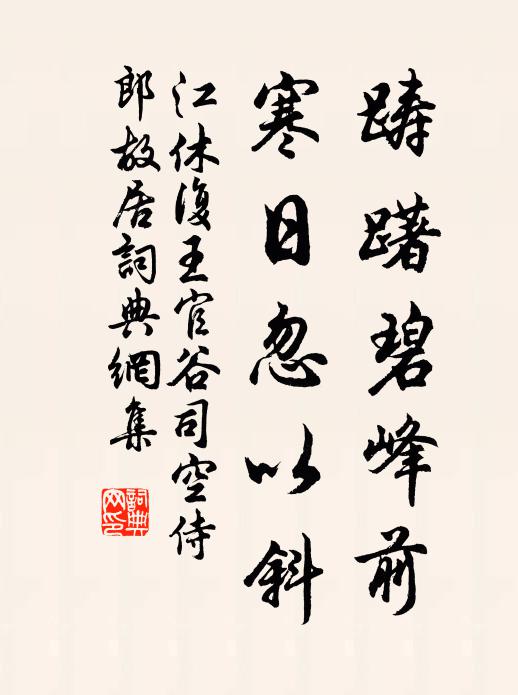 躊躇碧峰前
寒日忽以斜
江休復王官谷司空侍
郎故居詞典網集
詞典网印